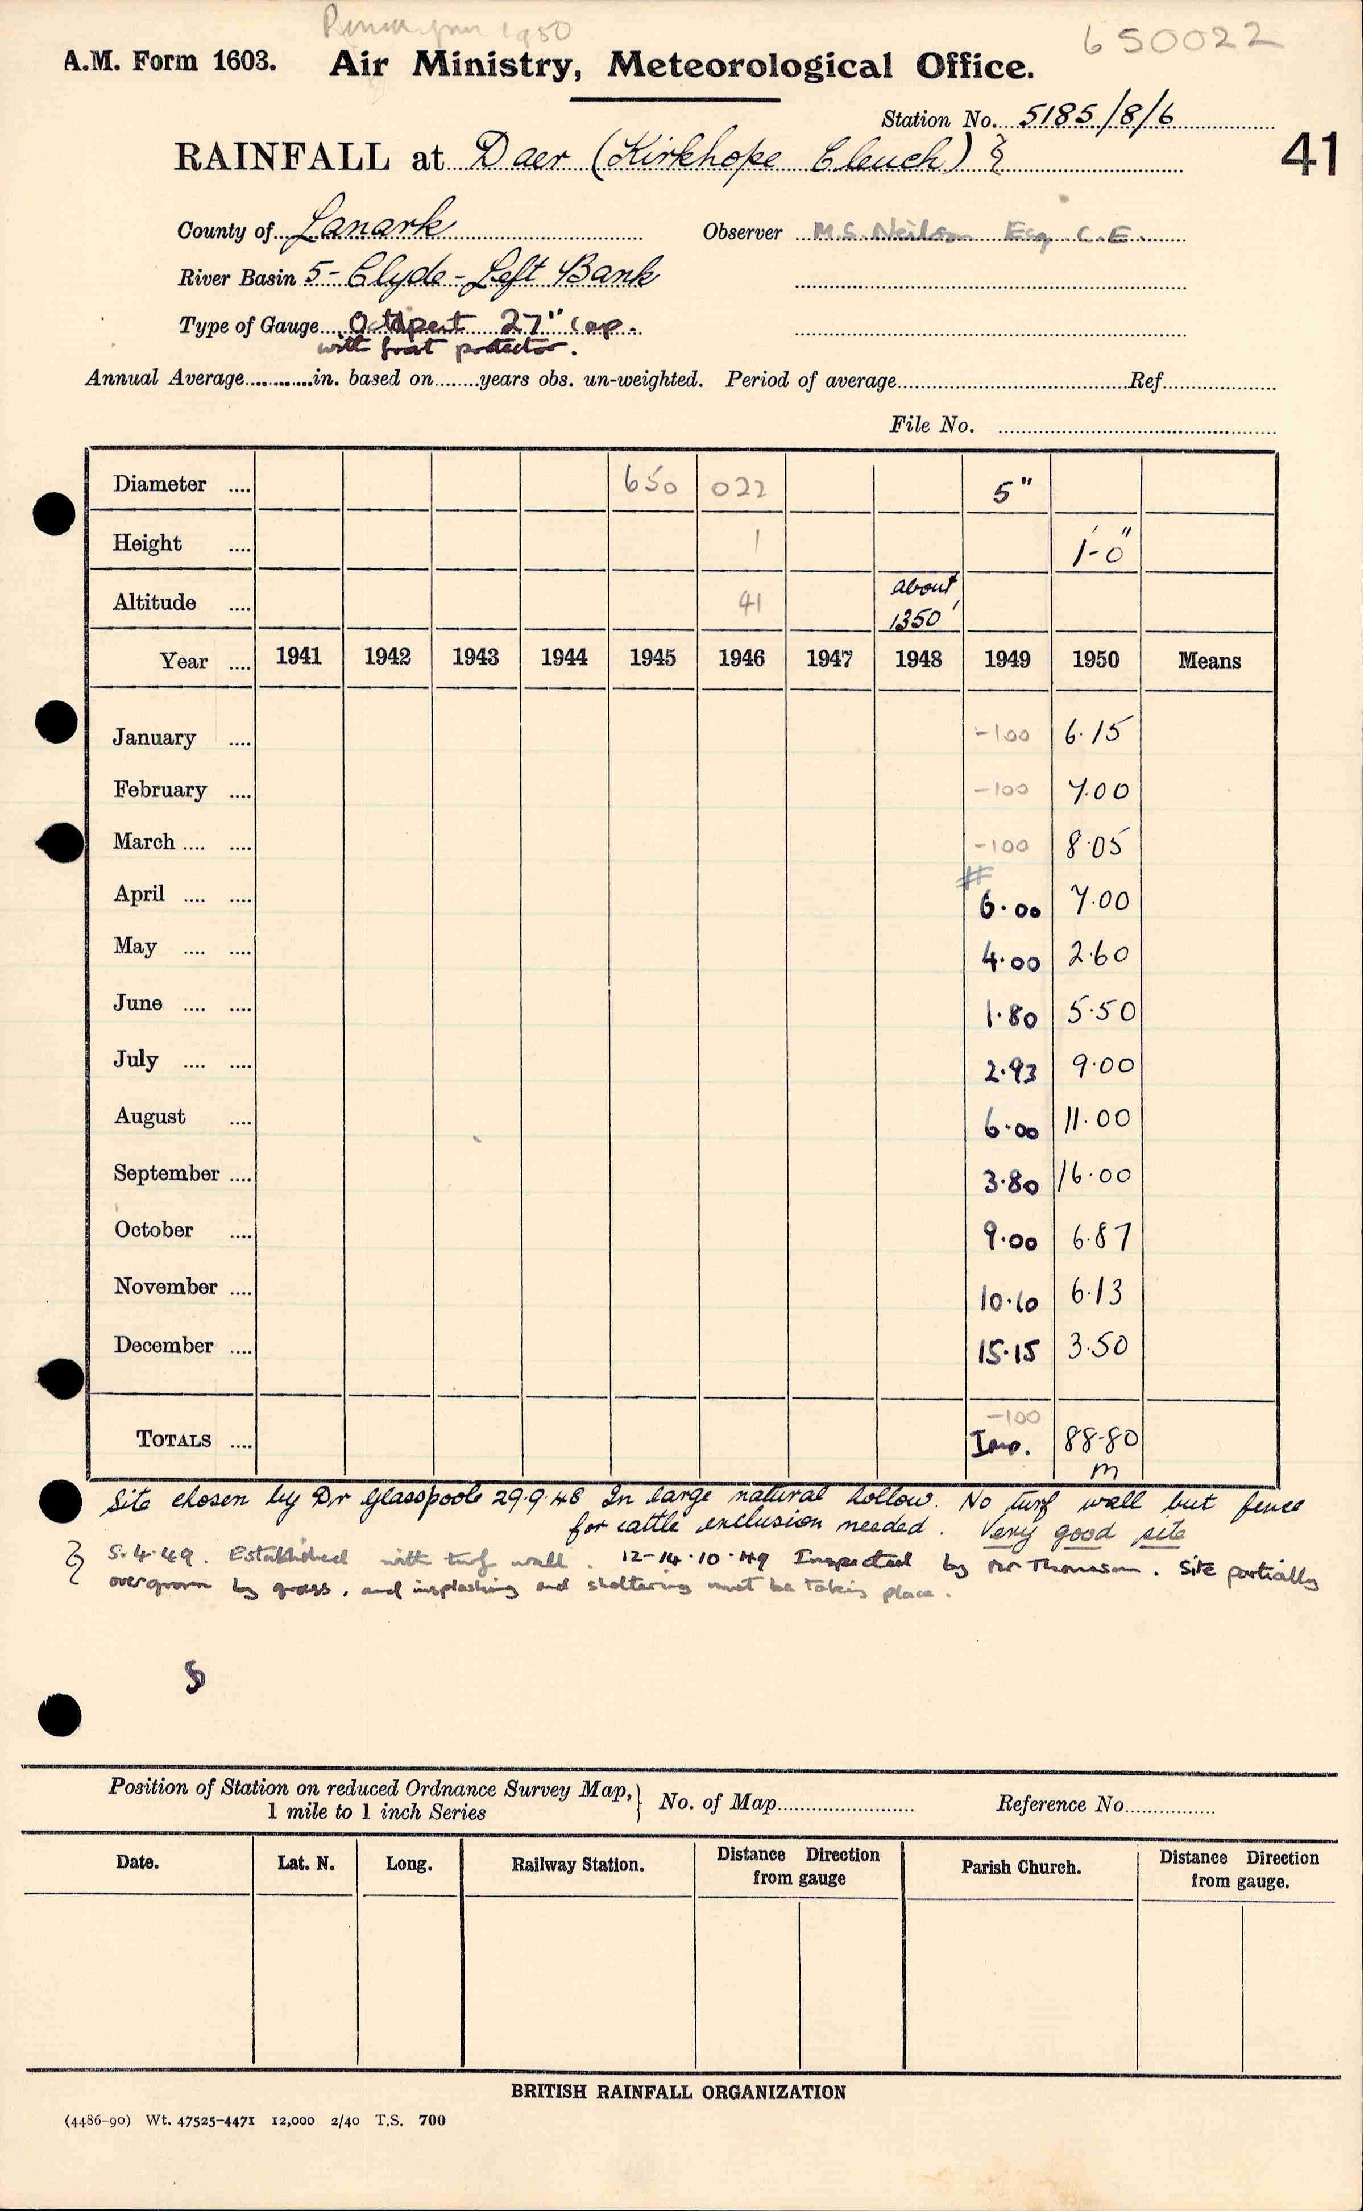 1950
650022
A.M. Form 1603. Air Ministry, Meteorological Office.
Station No. 5185/8/6
41
RAINFALL at Daer (Kirkhope Cleuch) }
County of Lanark Observer M.S. Neilson Esq C.E.
River Basin 5 - Clyde - Left Bank
Type of Gauge Octapent 27" cap.
with frost protector.
Annual Average............in. based on........years obs. un-weighted. Period of average........Ref........
File No. ........
Diameter .... 650 022 5"
Height .... 1 1'-0"
Altitude .... 41 about 1350'
Year .... 1941 1942 1943 1944 1945 1946 1947 1948 1949 1950 Means
January .... -100 6.15
February .... -100 7.00
March .... .... -100 8.05
April .... .... # 6.00 7.00
May .... .... 4.00 2.60
June .... .... 1.80 5.50
July .... .... 2.93 9.00
August .... 6.00 11.00
September .... 3.80 16.00
October .... 9.00 6.87
November .... 10.10 6.13
December .... 15.15 3.50
-100
TOTALS .... Imp. 88.80
m
Site chosen by Dr Glasspoole 29.9.48 In large natural hollow. No turf wall but fence
for cattle exclusion needed. Very good site
} 5.4.49. Established with turf wall. 12-14.10.49 Inspected by Mr Thomson. Site partially
overgrown by grass, and insplashing and sheltering must be taking place.
Position of Station on reduced Ordnance Survey Map, } No. of Map........ Reference No........
1 mile to 1 inch Series
Date. Lat. N. Long. Railway Station. Distance Direction from gauge Parish Church. Distance Direction from gauge.
BRITISH RAINFALL ORGANIZATION
(4486-90) Wt. 47525-4471 12,000 2/40 T.S. 700